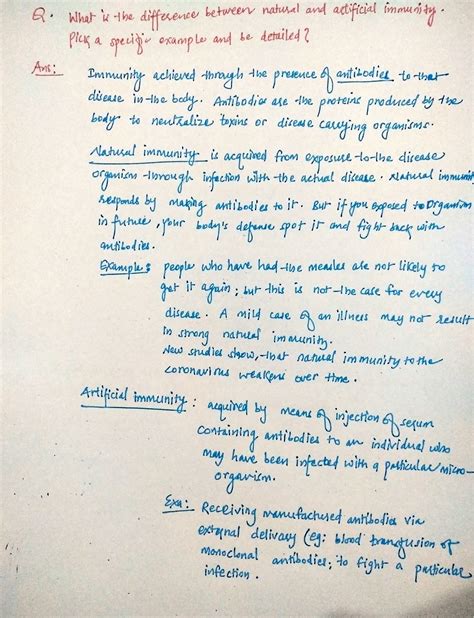 Q. What is the difference between natural and artificial immunity.
Pick a specific example and be detailed?
Ans: Immunity achieved through the presence of antibodies to that
disease in the body. Antibodies are the proteins produced by the
body to neutralize toxins or disease carrying organisms.
Natural immunity is acquired from exposure to the disease
organism through infection with the actual disease. Natural immunit
responds by making antibodies to it. But if you exposed to Organism
in future, your body's defense spot it and fight back with
antibodies.
Example: people who have had the measles are not likely to
get it again; but this is not the case for every
disease. A mild case of an illness may not result
in strong natural immunity.
New studies show, that natural immunity to the
coronavirus weakens over time.
Artificial immunity: acquired by means of injection of serum
containing antibodies to an individual who
may have been infected with a particular micro-
organism.
Exa: Receiving manufactured antibodies via
external delivary (eg: blood transfusion of
monoclonal antibodies; to fight a particular
infection.